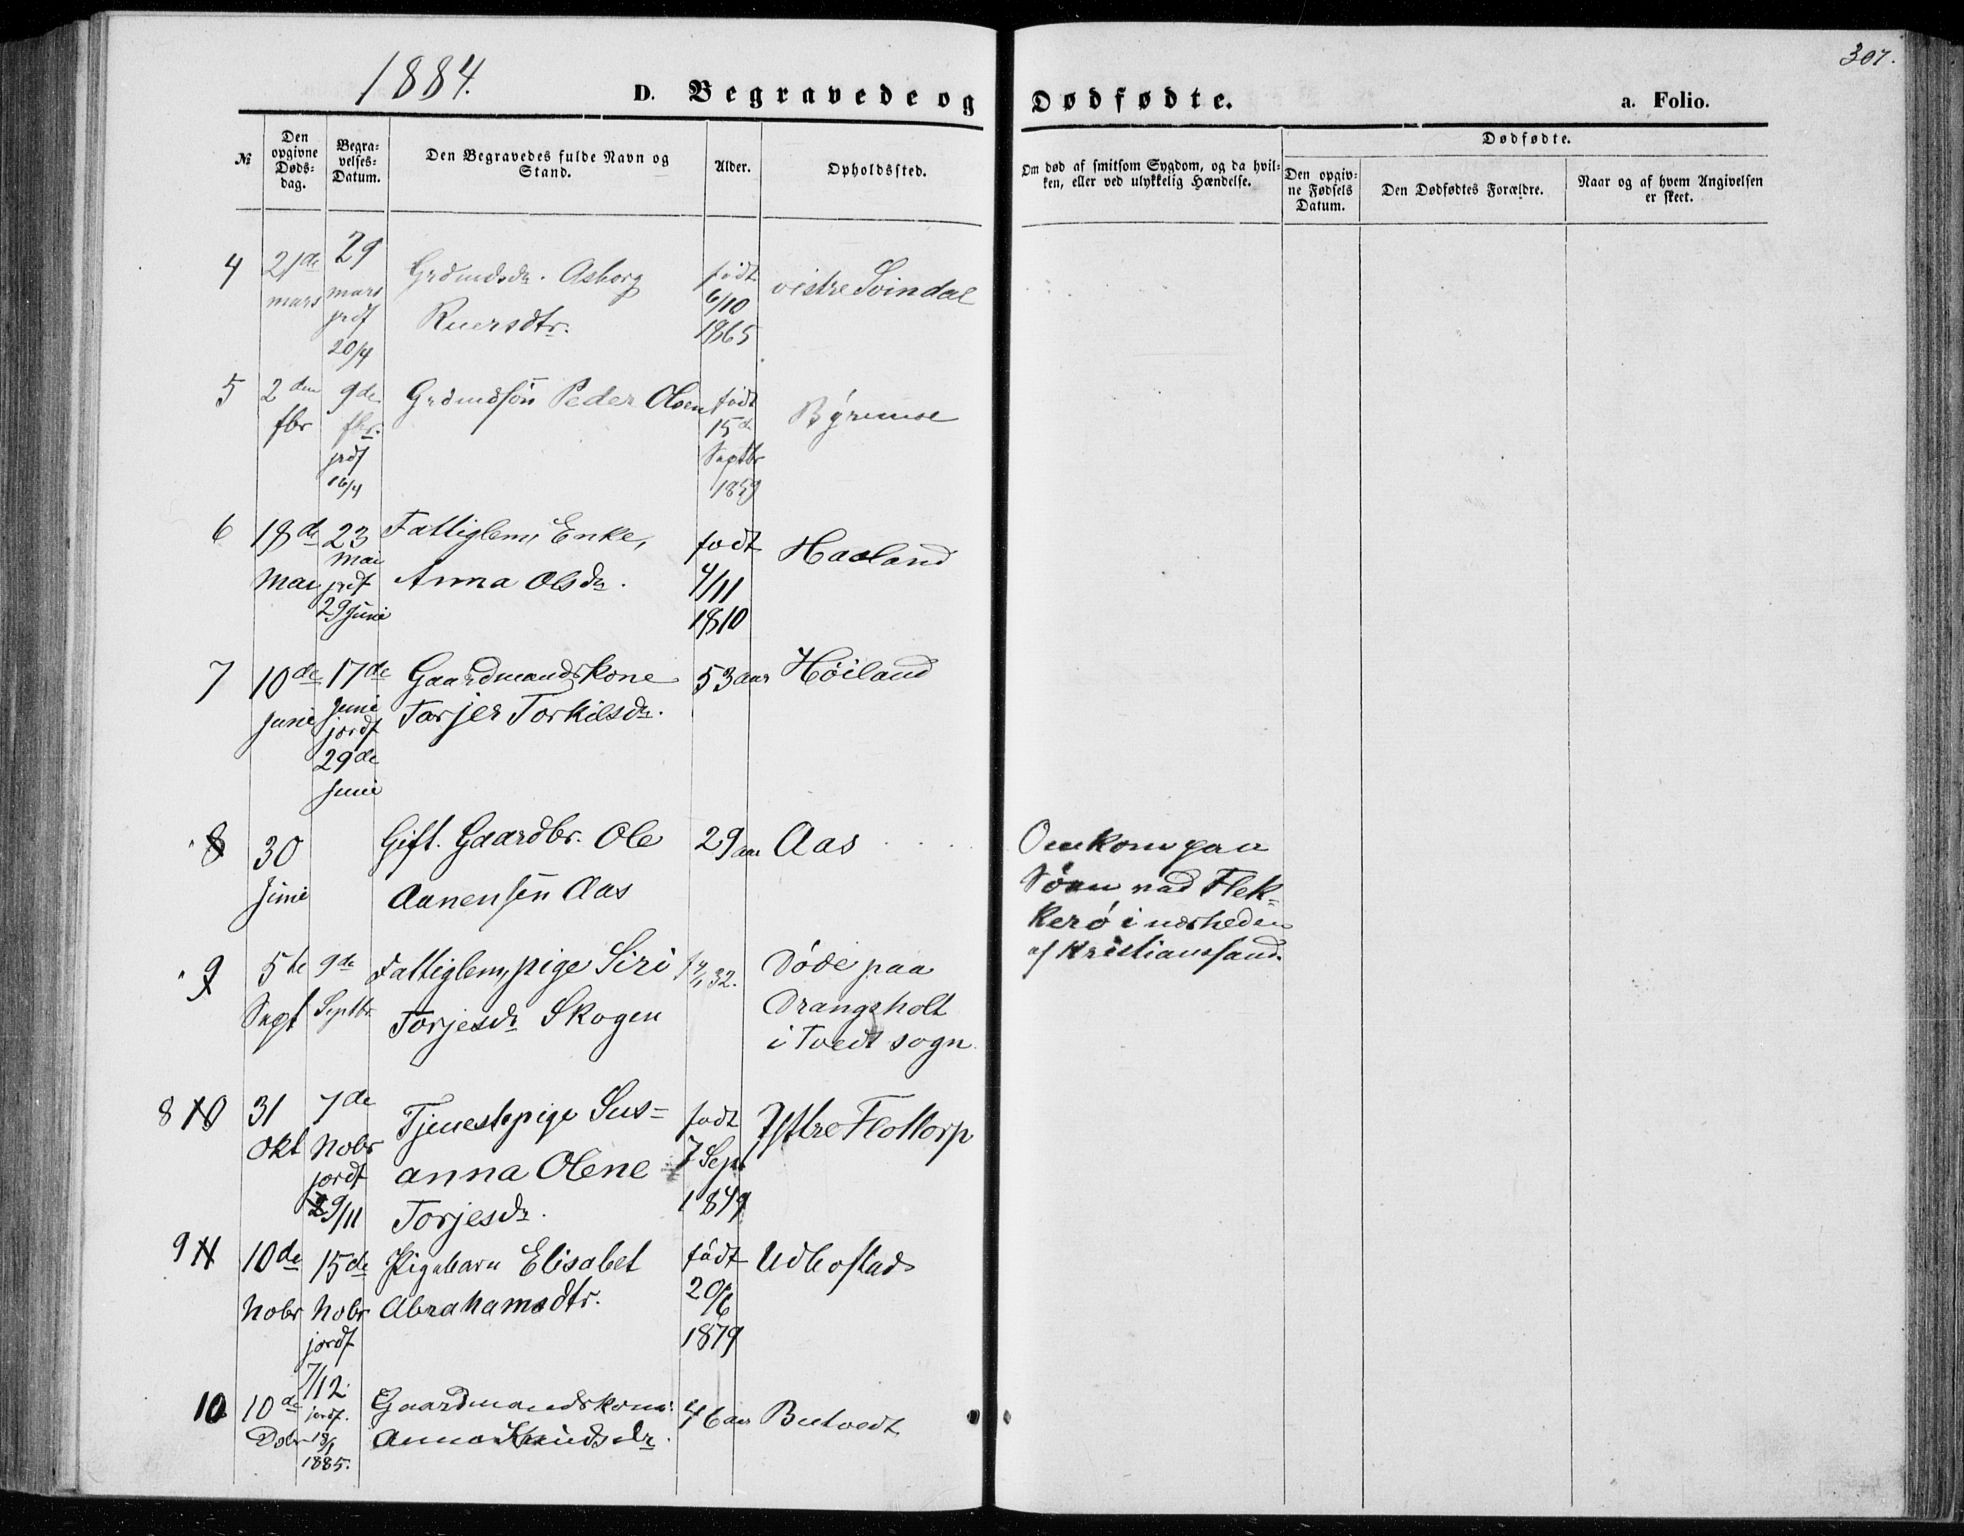 1884.
307.
D. Begravede og Dødfødte.
a. Folio.
№
Den opgivne Døds-dag.
Begra-velses-Datum.
Den Begravedes fulde Navn og Stand.
Alder.
Opholdssted.
Om død af smitsom Sygdom, og da hvil-ken, eller ved ulykkelig Hændelse.
Dødfødte.
Den opgiv-ne Fødsels Datum.
Den Dødfødtes Forældre.
Naar og af hvem Angivelsen er skeet.
4 21de mars
29 mars jrdf 20/4
Grdmdsdr. Asborg
Ruersdtr.
født 6/10 1865
vistre Svindal
5 2den fbr
9de fbr. jrdf 16/4
Grdmdsøn Peder Olsen
født 15de Septbr 1859
6 18de Mai
23 Mai jrdf 29 Juni
Fattiglem, Enke,
Anna Olsdr.
født 4/11 1810
Haaland
7 10de Juni
17de Juni jordf 29de Juni
Gaardmandskone
Torjer Torkilsdr.
53 aar
Høiland
8 30 Juni
Gift. Gaardbr. Ole
Aanensøn Aas
29 aar
Aas
Omkom paa
Søen ved Flek-
kerø i nærheden
af Kristiansand.
9 5te Sept
9de Septbr
Fattiglem, pige Siri
Torjesdr Skogen
32.
Døde paa
Drangsholt
i Tvedt sogn
8 10 31 Okt
7de Nobr jordf 29/11
Tjenestepige Sus-
anna Olene
Torjesdr.
født 7 Sept 1849
Ystre Flottorp
9 11 10de Nobr
15de Nobr jordf 7/12
Pigebarn Elisabet
Abrahamsdtr.
født 20/6 1879
Udbostad
10 10de Dbr
jordf. 18/1 1885.
Gaardmandskone
Anna Knudsdr.
46 aar
Butvedt